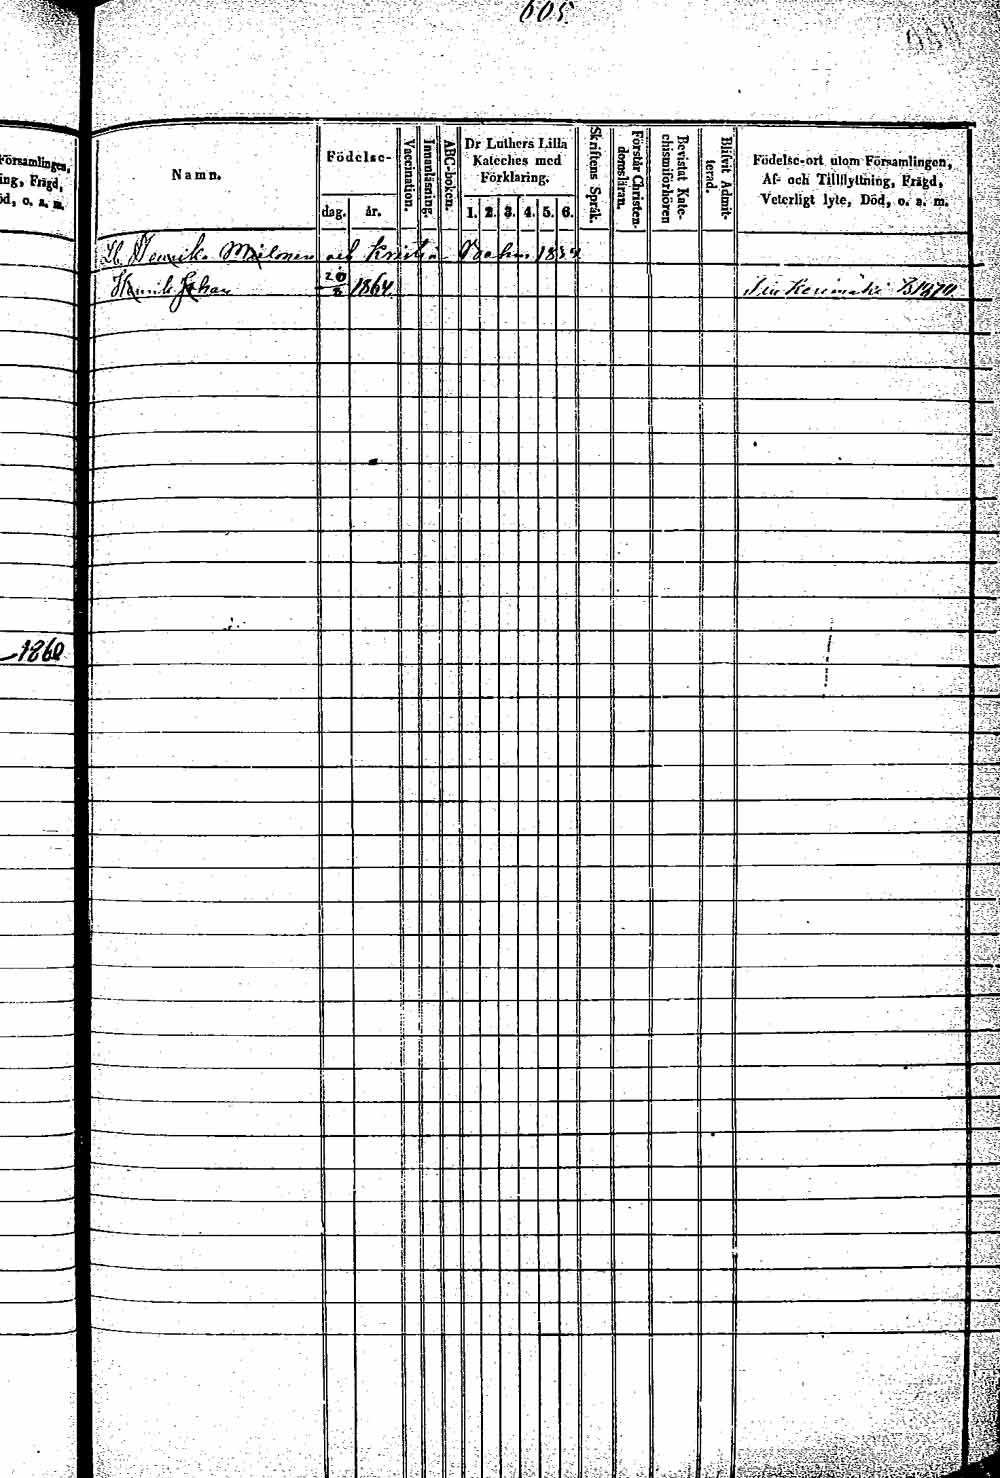 605.
Församlingen,
ing, Frägd,
öd, o. s. m.
Namn.
Födelse-
dag. år.
Vaccination.
Innanläsning.
ABC-boken.
Dr Luthers Lilla
Kateches med
Förklaring.
1. 2. 3. 4. 5. 6.
Skriftens Språk.
Förstår Christen-
domsläran.
Bevistat Kate-
chismiförhören
Blifvit Admit-
terad.
Födelse-ort utom Församlingen,
Af- och Tillflyttning, Frägd,
Veterligt lyte, Död, o. s. m.
Henrik och Kristina
Henrik Johan 20/8 1864 Kerimäki 1870
1860